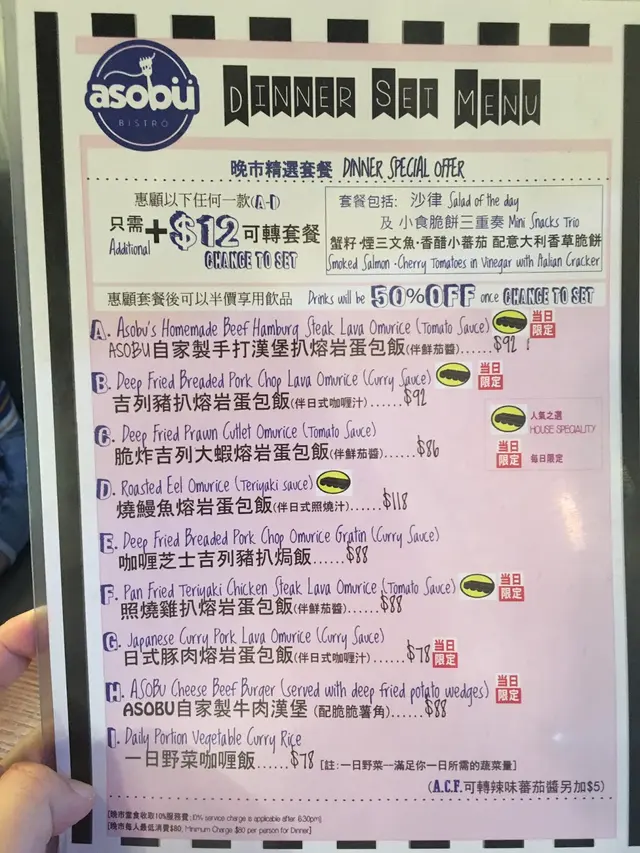 asobü
BISTRO
DINNER SET MENU
晚市精選套餐 DINNER SPECIAL OFFER
惠顧以下任何一款(A-I)
只需 Additional +$12 可轉套餐 CHANGE TO SET
套餐包括: 沙律 Salad of the day
及 小食脆餅三重奏 Mini Snacks Trio
蟹籽·煙三文魚·香醋小蕃茄 配意大利香草脆餅
Smoked Salmon · Cherry Tomatoes in Vinegar with Italian Cracker
惠顧套餐後可以半價享用飲品 Drinks will be 50%OFF once CHANGE TO SET
A. Asobu's Homemade Beef Hamburg Steak Lava Omurice (Tomato Sauce) 当日限定
ASOBU自家製手打漢堡扒熔岩蛋包飯(伴鮮茄醬)......$92
B. Deep Fried Breaded Pork Chop Lava Omurice (Curry Sauce) 当日限定
吉列豬扒熔岩蛋包飯(伴日式咖喱汁)......$92
人氣之選
HOUSE SPECIALITY
当日限定 每日限定
C. Deep Fried Prawn Cutlet Omurice (Tomato Sauce)
脆炸吉列大蝦熔岩蛋包飯(伴鮮茄醬)......$86
D. Roasted Eel Omurice (Teriyaki sauce)
燒鰻魚熔岩蛋包飯(伴日式照燒汁)......$118
E. Deep Fried Breaded Pork Chop Omurice Gratin (Curry Sauce)
咖喱芝士吉列豬扒焗飯......$88
F. Pan Fried Teriyaki Chicken Steak Lava Omurice (Tomato Sauce) 当日限定
照燒雞扒熔岩蛋包飯(伴鮮茄醬)......$88
G. Japanese Curry Pork Lava Omurice (Curry Sauce)
日式豚肉熔岩蛋包飯(伴日式咖喱汁)......$78 当日限定
H. ASOBU Cheese Beef Burger (served with deep fried potato wedges) 当日限定
ASOBU自家製牛肉漢堡 (配脆脆薯角)......$88
I. Daily Portion Vegetable Curry Rice
一日野菜咖喱飯......$78 [註:一日野菜—滿足你一日所需的蔬菜量]
(A.C.F.可轉辣味蕃茄醬另加$5)
[晚市堂食收取10%服務費:10% service charge is applicable after 6:30pm]
[晚市每人最低消費$80, Minimum Charge $80 per person for Dinner]